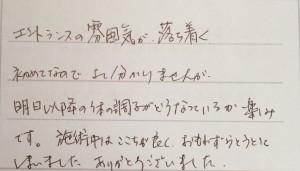 エントランスの雰囲気が、落ち着く
初めてなので よく分かりませんが、
明日以降の体の調子がどうなっているか 楽しみ
です。施術中は ここちが良く、おもわずうとうとし
しまいました ありがとうございました。